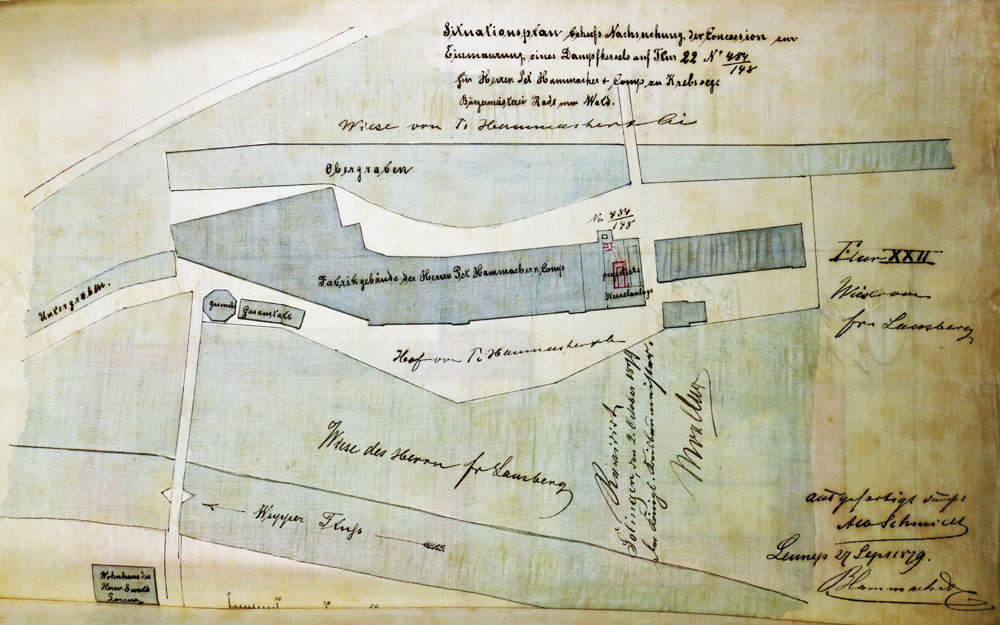 Situationsplan behufs Nachsuchung der Concession zur
Einmaurung eines Dampfkessels auf Flur 22 No 484/148
für Herren Pet Hammacher & Comp zu Krebsoege
Bürgermeisterei Rade vorm Wald.
Wiese von P. Hammacher &
Obergraben
No 484/148
Fabrikgebäude der Herren Pet Hammacher & Comp
Kesselanlage
Flur XXII
Wiese von
fr. Lausberg
Untergraben.
Gasanstalt
Hof von P. Hammacher &
Wiese des Herrn fr Lausberg
Wupper Fluss
Revidirt
Solingen, den 2. October 1879
Der Königl. Kreisbaumeister.
ausgefertigt durch:
Schmidt
Lennep 27 Sept 1879.
P Hammacher
Wohnhaus des
Herrn Ewald
0 10 20 30